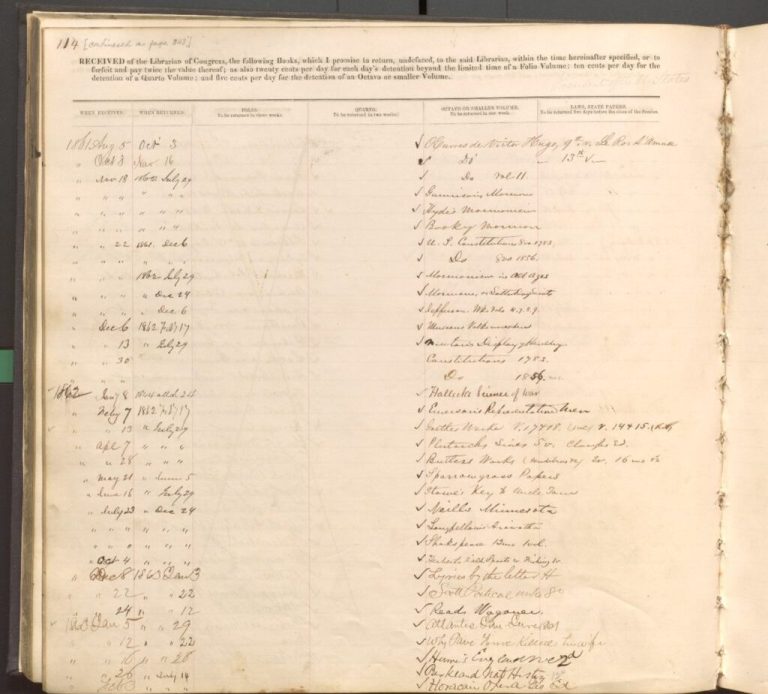 114 [continued on page 308]
RECEIVED of the Librarian of Congress, the following Books, which I promise to return, undefaced, to the said Librarian, within the time hereinafter specified, or to
forfeit and pay twice the value thereof; as also twenty cents per day for each day's detention beyond the limited time of a Folio Volume; ten cents per day for the
detention of a Quarto Volume; and five cents per day for the detention of an Octavo or smaller Volume.
WHEN RECEIVED. WHEN RETURNED. FOLIO. QUARTO. OCTAVO OR SMALLER VOLUME. LAWS, STATE PAPERS,
To be returned in three weeks. To be returned in two weeks. To be returned in one week. To be returned five days before the close of the Session.
1861 Aug 5 Oct 3 Oeuvres de Victor Hugo, 9th v.
" Oct 8 Nov. 16 Do 13th v
" Nov 18 1862 July 29 Do vol 11
" " " " " " Gunnison's Mormons
" " " " " " Hyde's Mormonism
" " " " " " Book of Mormon
" " 22 1861 Dec 6 U. S. Constitution 8vo 1783
" " " " " " Do 8vo 1856
" " " 1862 July 29 Mormonism in all ages
" " " " Dec 24 Mormons, or Latter day Saints
" " " " Dec 6 Jefferson's Wks Vols 8. 7. 9
" Dec 6 1862 Feb 17
" " 13 " July 29 Newton's Display of Heraldry
" " 30 Constitutions 1783
" " " Do 1856
1862 Jany 8 Halleck's Science of War
" Feby 7 1862 Feb 17 Emerson's Representative Men
" " 13 " July 29 Goethe's Werke
" Apl 7 " " " Plutarch's Lives 5v. Clough's Ed.
" " 28 " " " Butler's Works
" May 21 " June 5 Sparrowgrass Papers
" June 16 " July 29 Stowe's Key to Uncle Tom's
" July 23 " Dec 24 Neill's Minnesota
" " " " " " Longfellow's Hiawatha
" " " " " " Shakspeare 12mo vol.
" Oct 4 " " "
" Dec 8 1863 Jan 3 Lyrics by the letter H
" " 22 " " 22 Scott Poetical works 8v
" " 24 " " 12 Reads Wagoner
1863 Jan 5 " " 29 Atlantic
" " 12 " " 22 Why Paul Ferroll Killed his wife
" " 16 " " 26 Hume's England v 2d
" " 26 " July 14 Nat Hist
" Feb 3 " "